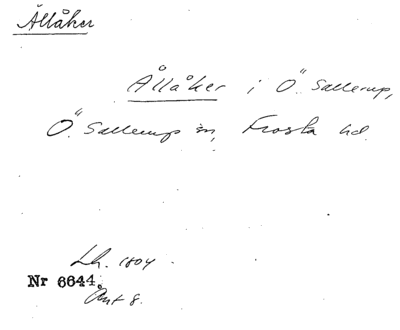 Ållåker
Ållåker i Ö. Sallerup,
Ö. Sallerup sn, Frosta hd.
Lh. 1804.
Nr 6644.
Akt 8.